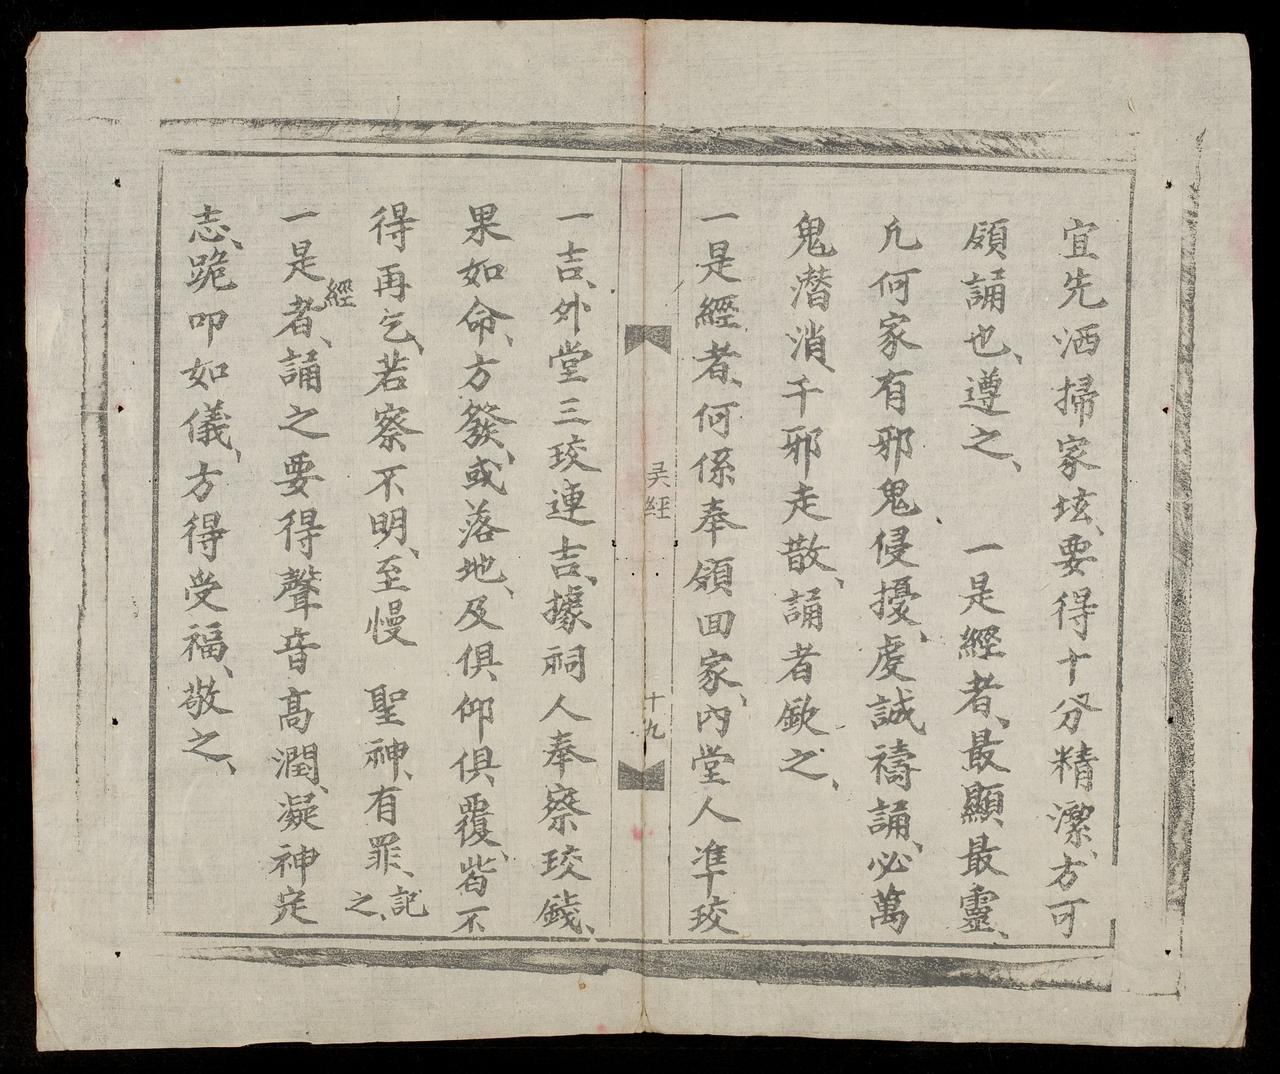 宜先洒掃家坛、要得十分精潔、方可
領誦也、遵之、 一是經者、最顯最靈、
凢何家有邪鬼、侵擾、虔誠禱誦、必萬
鬼潛消、千邪走散、誦者欽之、
一是經者、何係奉領回家、內堂人準珓
吴經
十九
一吉、外堂三珓連吉、據祠人奉察珓錢、
果如命、方發、或落地、及俱仰俱覆、皆不
得再乞、若察不明、至慢 聖神、有罪、記之、
一是經者、誦之要得聲音高潤、凝神定
志、跪叩如儀、方得受福、敬之、